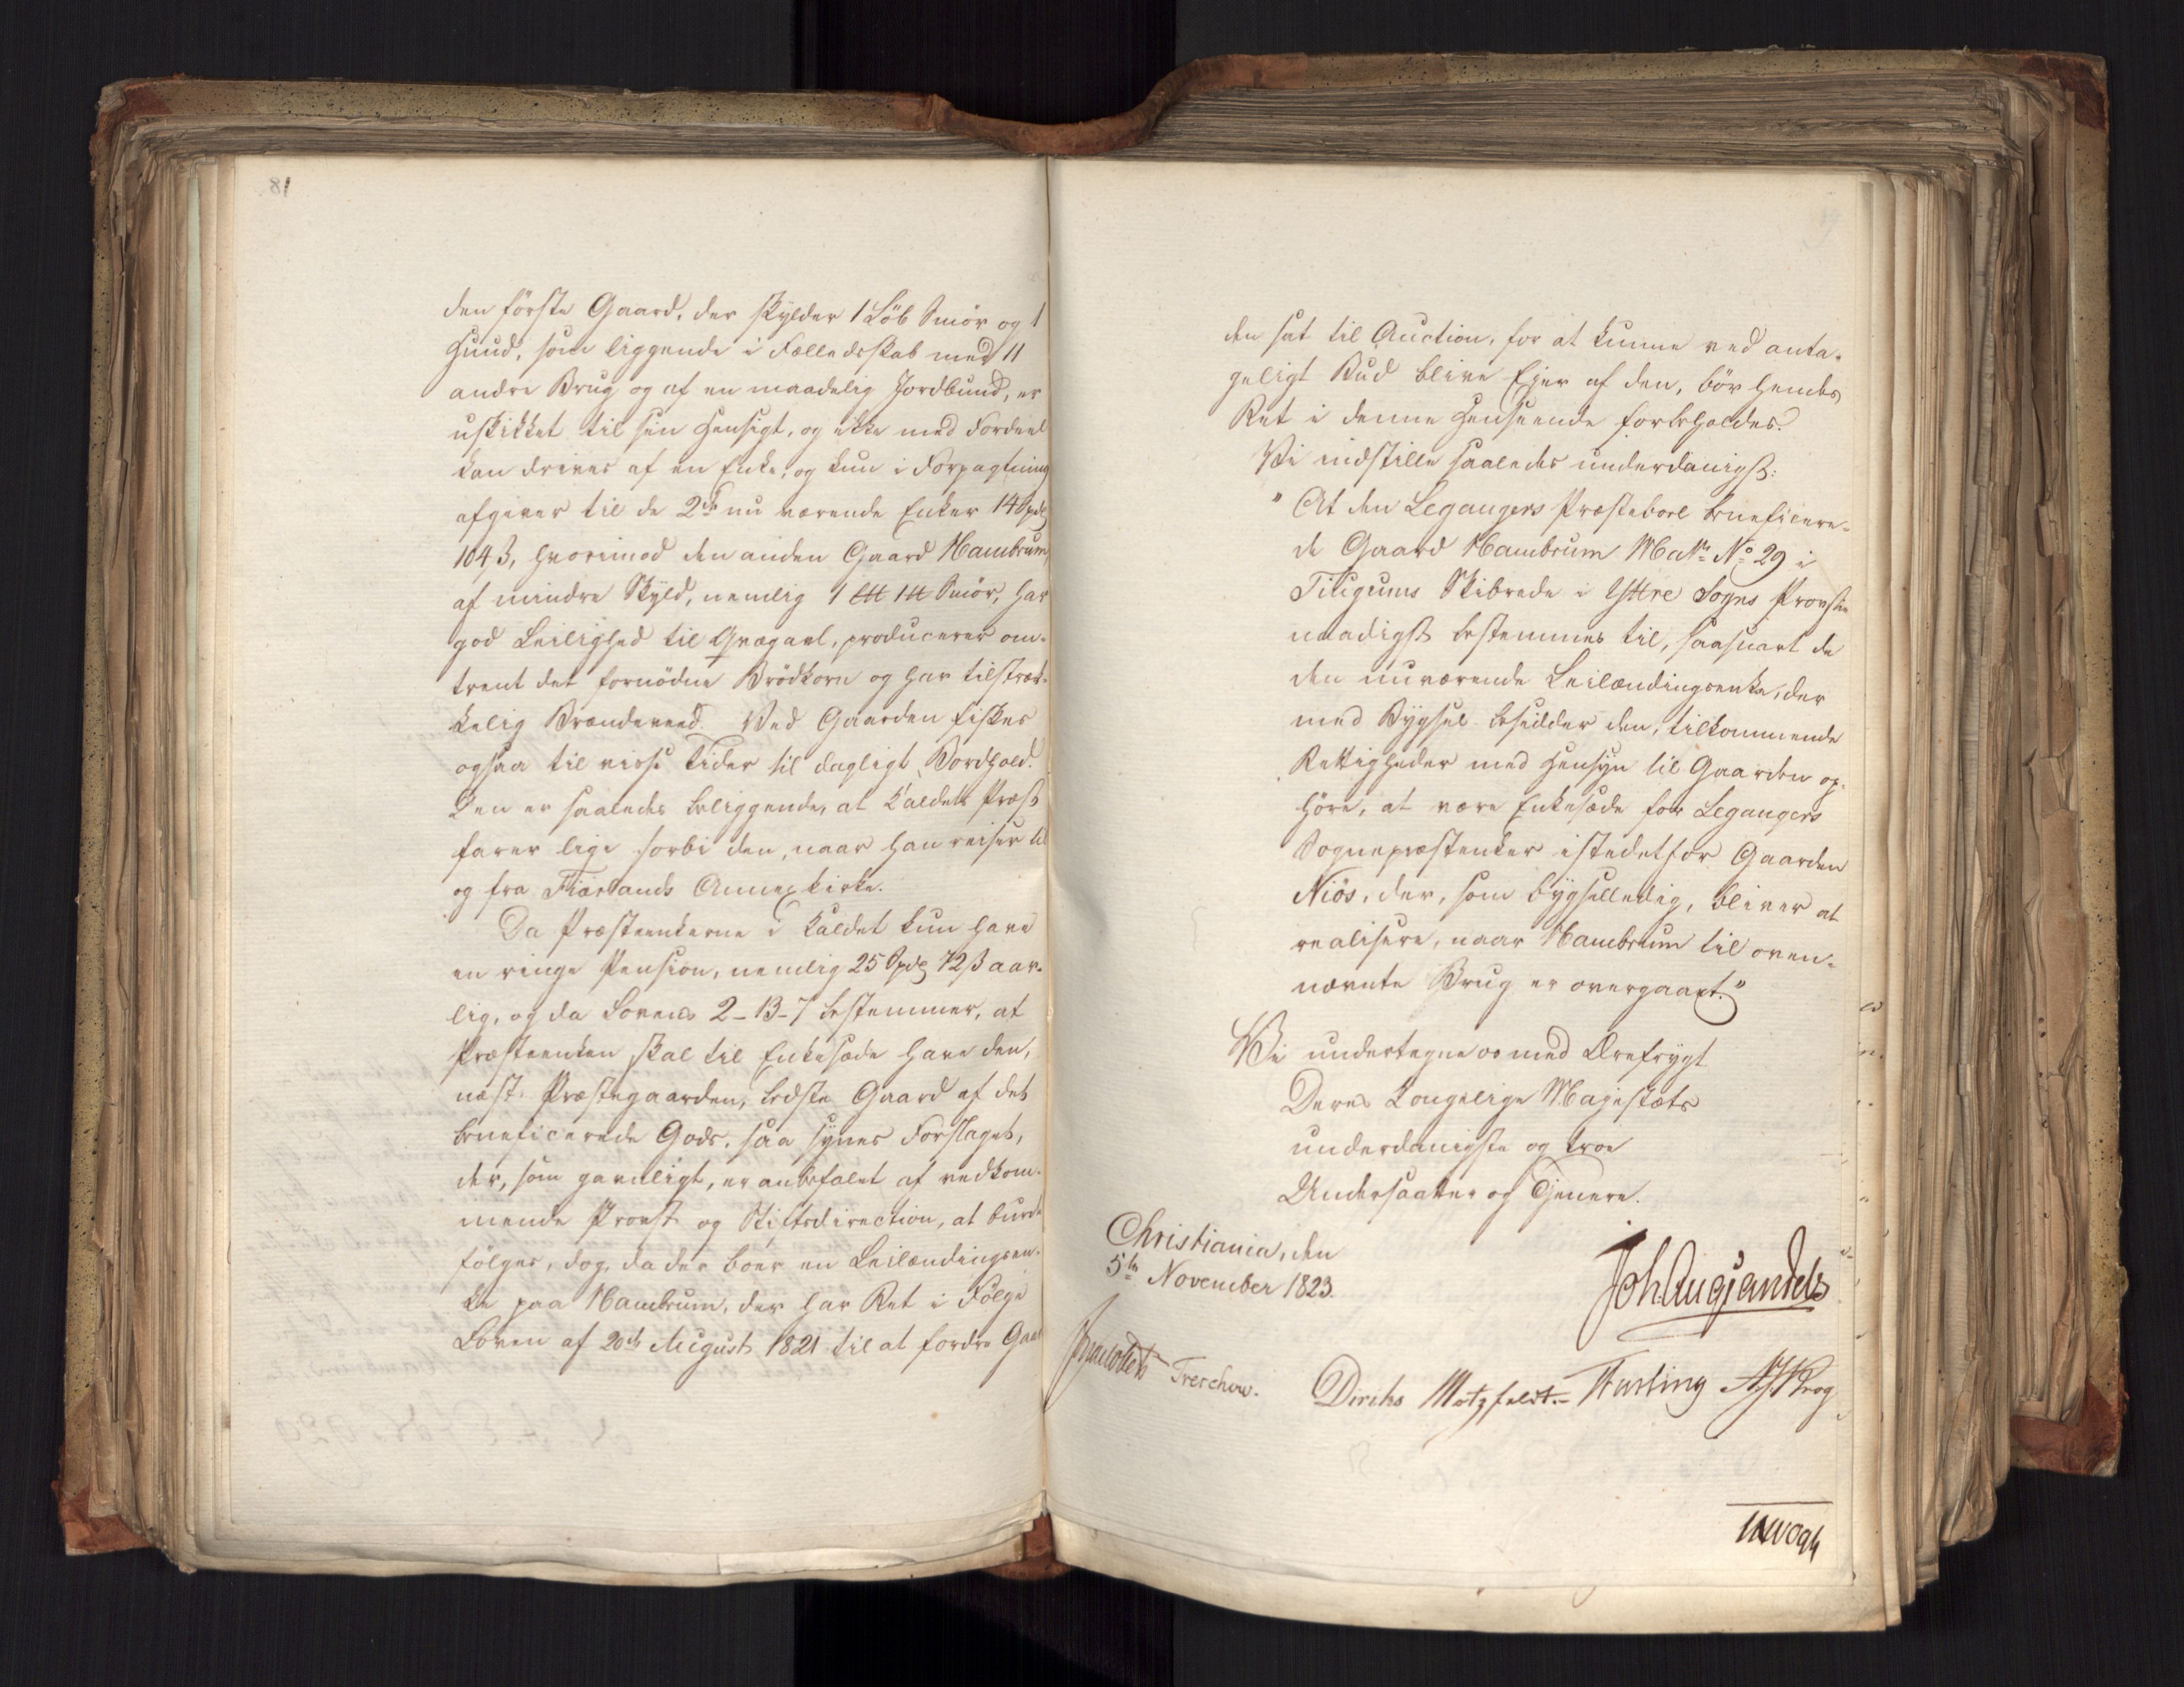 81
den förste Gaard, der skylder 1 Löb Smör og 1
Huud, som liggende i Fælledsskab med 11
andre Brug og af en maadelig Jordbund, er
uskikket til sin Hensigt, og ikke med Fordeel
kan drives af en Enke, og kun i Forpagtning
afgiver til de 2de nu værende Enker 14 Spd
104 ß, hvorimod den anden Gaard Hambrum,
af mindre Skyld, nemlig 1 Smör, har
god Leilighed til Qvægavl, producerer om-
trent det fornödne Brödkorn og har tilstræk-
kelig Brændeveed. Ved Gaarden fiskes
ogsaa til visse Tider til dagligt Bordhold.
Den er saaledes beliggende, at Kaldets Præst
farer lige forbi den, naar han reiser til
og fra Fiærlands Annexkirke.
Da Præsteenkerne i Kaldet kun have
en ringe Pension, nemlig 25 Spd 72 ß aar-
lig, og da Lovens 2-13-7 bestemmer, at
Præsteenken skal til Enkesæde have den,
næst Præstegaarden, bedste Gaard af det
beneficerede Gods, saa synes Forslaget,
der, som gavnligt, er anbefalet af vedkom-
mende Provst og Stiftsdirection, at burde
fölges, dog, da der boer en Leilændingsen-
ke paa Hambrum, der har Ret i Fölge
Loven af 20de August 1821 til at fordre Gaar
den sat til Auction, for at kunne ved anta-
geligt Bud blive Ejer af den, bör hendes
Ret i denne Henseende forbeholdes.
Vi indstille saaledes underdanigst:
"At den Legangers Præstebord beneficere-
de Gaard Hambrum Matr: No 29 i
Tiugums Skibrede i Yttre Sogns Provstie
naadigst bestemmes til, saasnart de
den nuværende Leilændingsenke, der
med Bygsel besidder den, tilkommende
Rettigheder med Hensyn til Gaarden op-
höre, at være Enkesæde for Legangers
Sognepræstenker istedetfor Gaarden
Niös, der, som bygselledig, bliver at
realisere, naar Hambrum til oven-
nævnte Brug er overgaaet."
Vi undertegne os med Ærefrygt
Deres Kongelige Majestæts
underdanigste og troe
Undersaatter og Tjenere.
Christiania, den
5te November 1823.
Joh Aug Sandels
Treschow. Diriks Motzfeldt. Fasting Krog